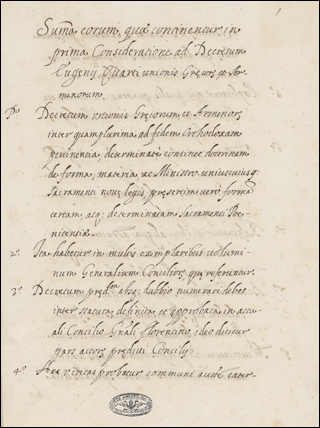 Suma eorum, quæ continentur in
prima Consideratione ad Decretum
Eugenij Quarti unionis Grecor. et Ar-
menorum.
Po Decretum unionis Grecorum et Armenor.
inter quamplurima ad fidem Orthodoxam
pertinentia determinate continet doctrinam
de forma, materia, ac Ministro uniuscuiusq.
sacramenti novæ legis presertim vero formã
certam, acq. determinatam Sacramenti Poe-
nitentiæ
2o Ita habetur in multis exemplaribus volumi-
num Generalium Concilior. quæ referuntur.
3o Decretum pred.tm absq. dubbio numerari debet
inter statuta, definita, et approbata in
ali Concilio Gnãli florentino, ideo dicitur
pars predicti Concilij
4o Hæc veritas probatur communi